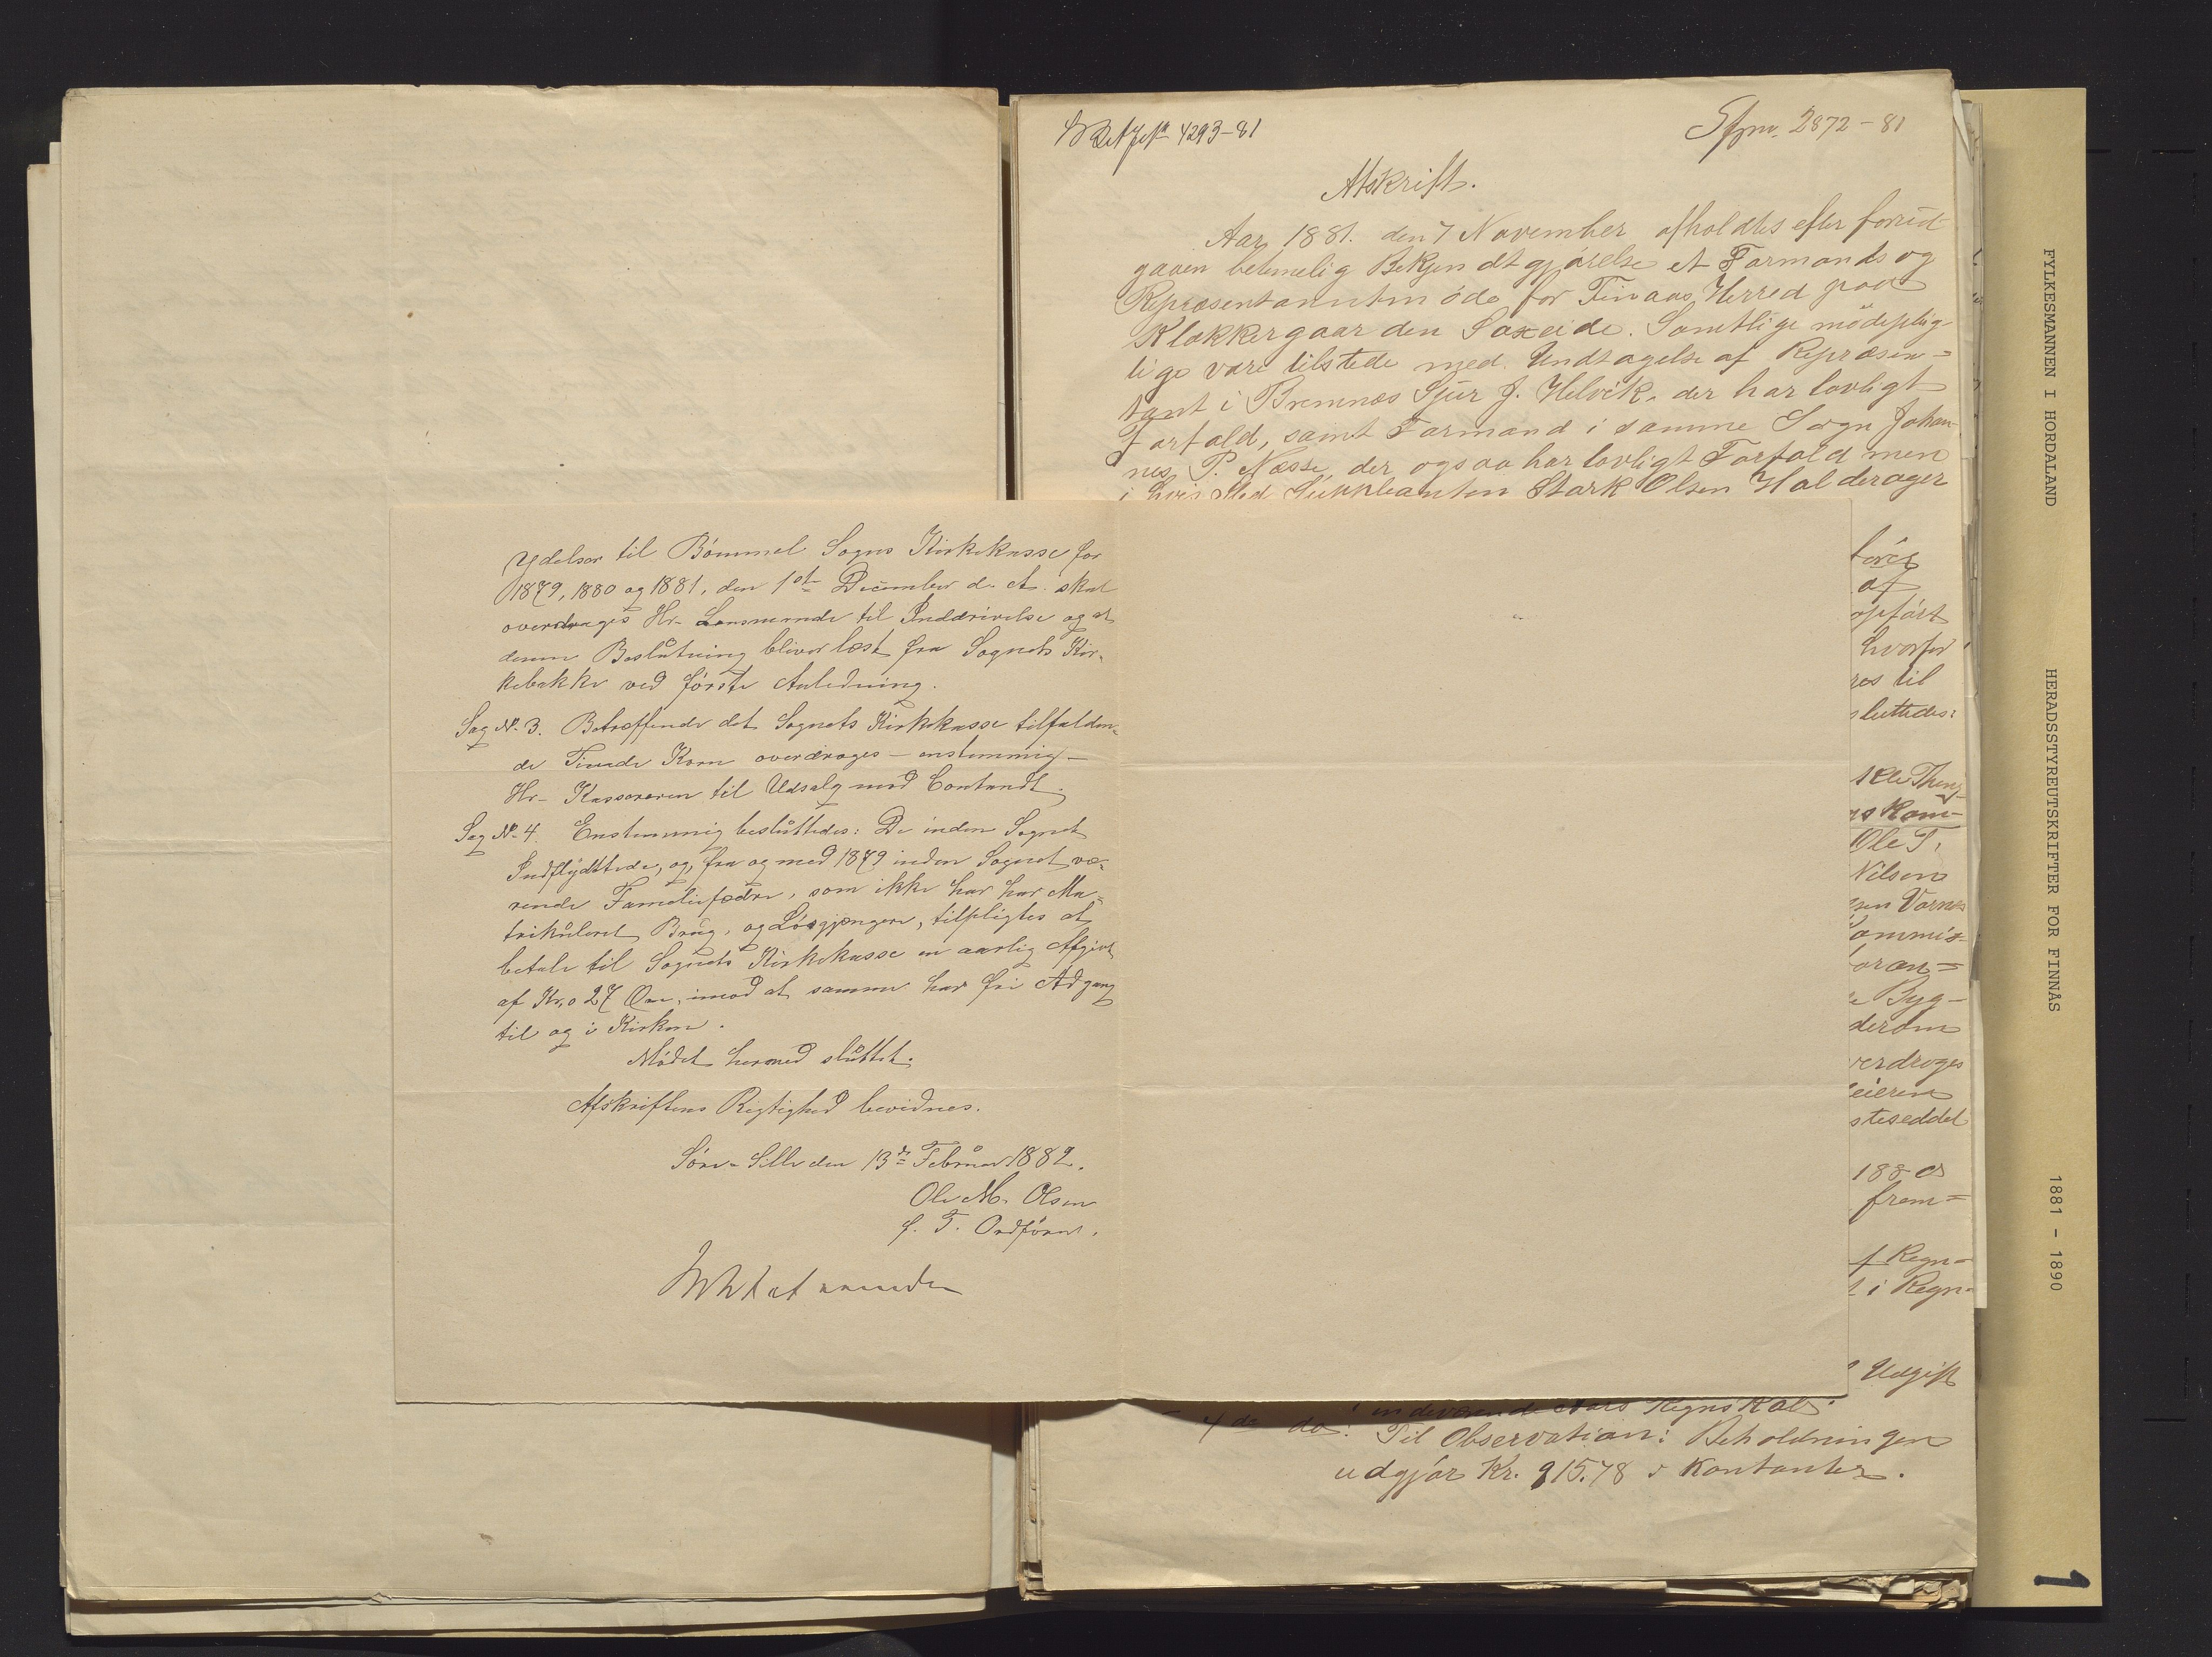 4293-81
2872-81
Afskrift.
Aar 1881. den 7 November afholdtes efter forud-
gaaen betimelig Bekjendtgjørelse et Formands og
Repræsentantmöde for Finaas Herred paa
Klokkergaarden Saxeide. Samtlige mödeplig-
tige vare tilstede med Undtagelse af Repræsen=
tant i Bremnes Sjur J. Helvik, der har lovligt
Forfald, samt Formand i samme Sogn Johan-
nes P. Næsse, der ogsaa har lovligt Forfald men
i hvis Sted Suppleanten Stark Olsen Halderager
Ydelser til Bömmel Sogns Kirkekasse for
1879, 1880 og 1881, den 1st December d. A. skal
overdrages Hr. Lensmande til Inddrivelse og at
denne Beslutning bliver læst fra Sognets Kir-
kebakke ved förste Anledning.
Sag No. 3. Betræffende det Sognets Kirkekasse tilfalden-
de Tiende Korn overdrages – enstemmig –
Hr. Kassereren til Udsalg mod Contandt.
Sag No. 4. Enstemmig besluttedes: De inden Sognet
Indflydttede, og, fra og med 1879 inden Sognet væ-
rende Familiefædre, som ikke har har Ma-
trikuleret Brug, og Lösgjængere, tilpligtes at
betale til Sognets Kirkekasse en aarlig Afgivt
af Kr. 0 27 Öre, imod at samme har fri Adgang
til og i Kirken.
Mödet hermed sluttet.
Afskriftens Rigtighed bevidnes.
Söre-Sille den 13de Februar 1882.
Ole M. Olsen
f. T. Ordförer.
af
opfört
hvorfor
res til
sluttedes:
Ole T.
Nilsens
sen Vornes
ommis-
oran=
e Byg-
derom
verdroges
eieren
steseddel
188
frem=
f Regn=
t i Regn-
Udgift
4de do: indeværende Aars Regnskab.
Til Observation: Beholdningen
udgjör Kr. 915.78 i Kontanter.
FYLKESMANNEN I HORDALAND
HERADSSTYREUTSKRIFTER FOR FINNÅS
1881 - 1890
1